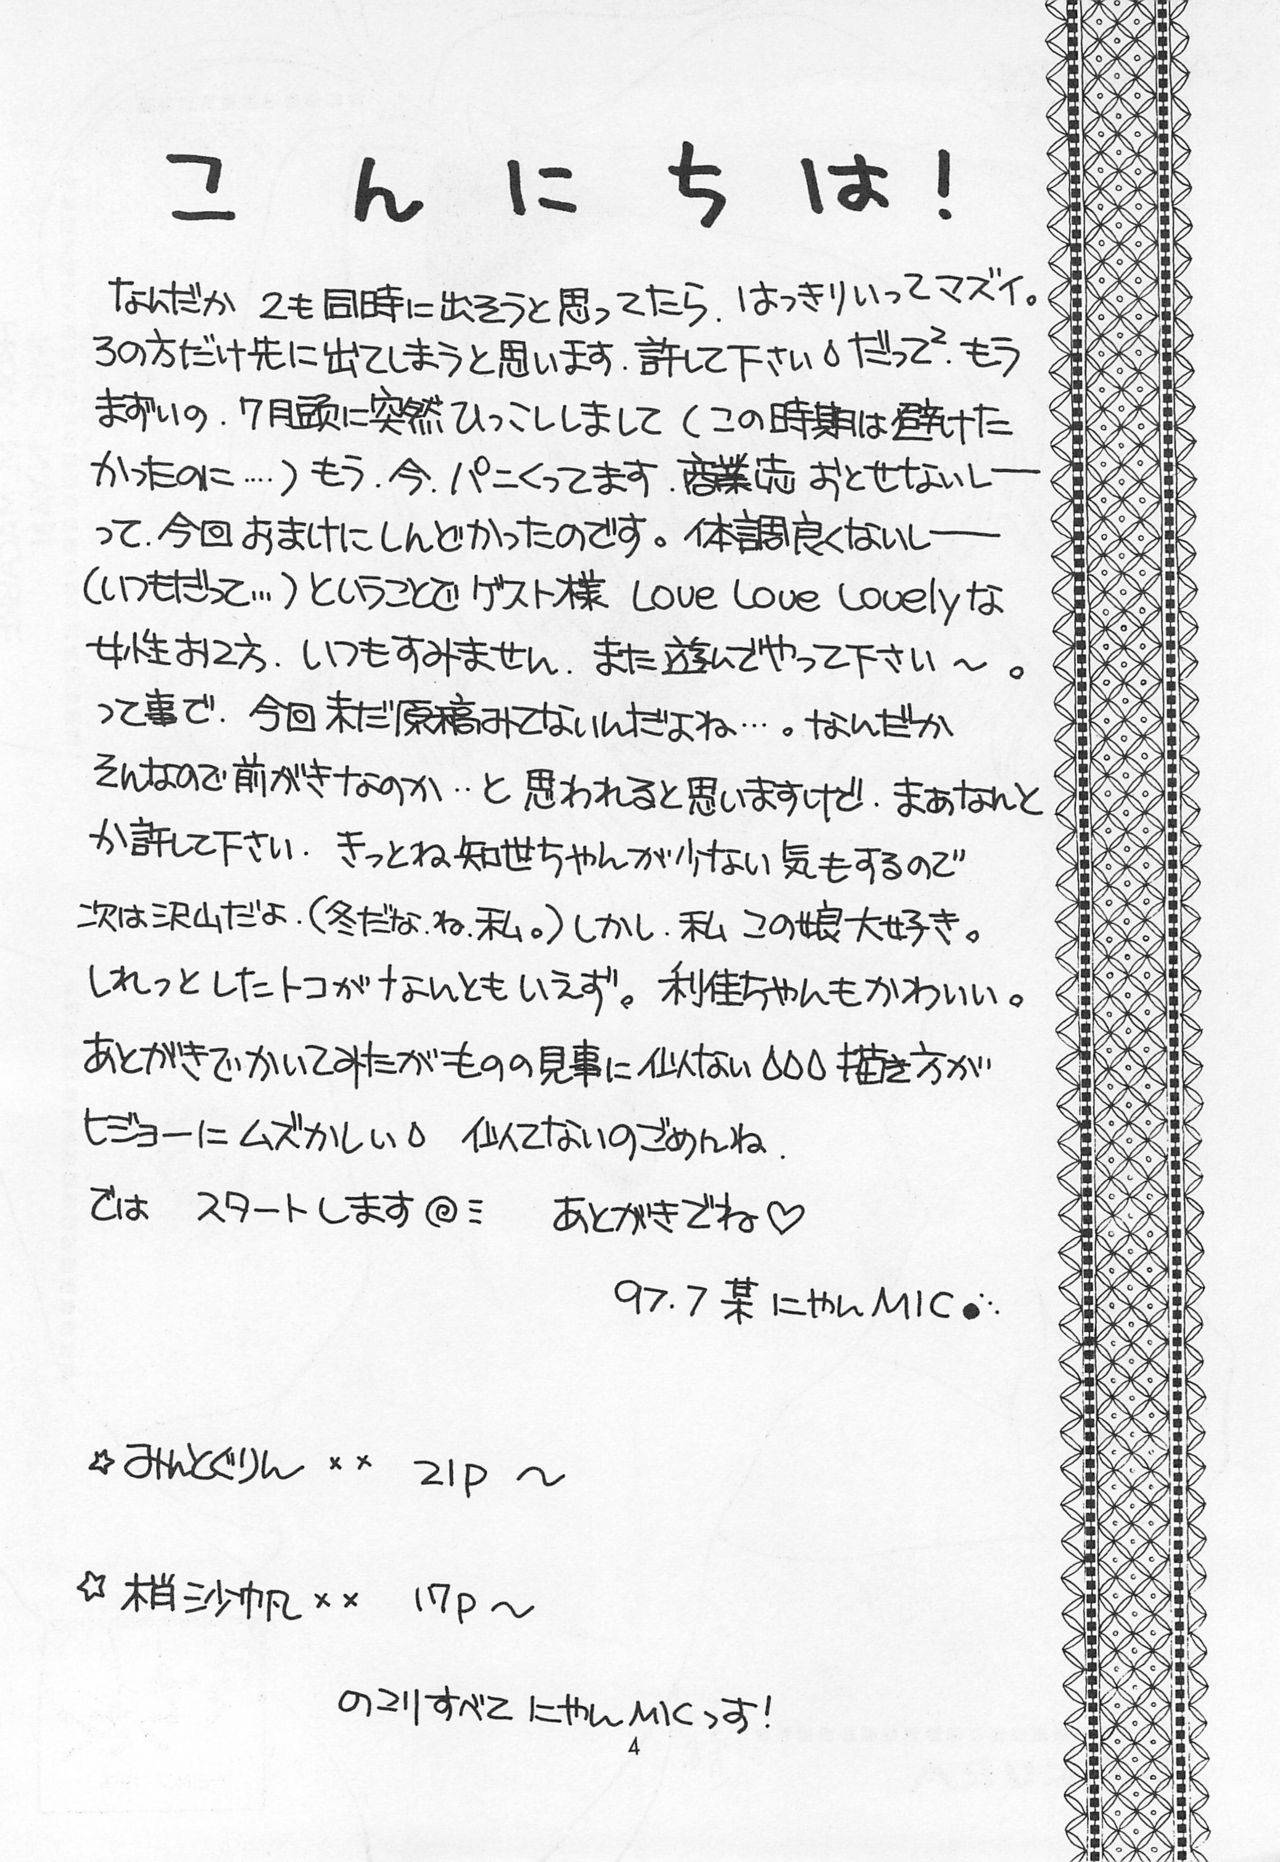 こんにちは!
なんだか 2も同時に出そうと思ってたら、はっきりいってマズイ。
3の方だけ先に出てしまうと思います.許して下さい だって². もう
まずいの.7月頭に突然ひっこししまして(この時期は避けた
かったのに‥‥)もう.今.パニくってます.商業誌 おとせないしー
って.今回おまけにしんどかったのです。体調良くないしー
(いつもだって…)ということでゲスト様 Love Love Lovelyな
女性お2方.いつもすみません.また遊んでやって下さい〜。
って事で.今回未だ原稿みてないんだよね…。なんだか
そんなので前がきなのか‥と思われると思いますけど.まぁなんと
か許して下さい.きっとね知世ちゃんが少ない気もするので
次は沢山だよ.(冬だな.ね.私。)しかし.私 この娘大好き。
しれっとしたトコがなんともいえず。利佳ちゃんもかわいい。
あとがきでかいてみたがものの見事に似ない 描き方が
ヒジョーにムズかしい 似てないのごめんね.
では スタートします@ミ あとがきでね♡
97.7 某 にゃんMIC
☆みんとぐりん×× 21p〜
☆梢沙帆×× 17p〜
のコリすべて にゃんMICっす!
4